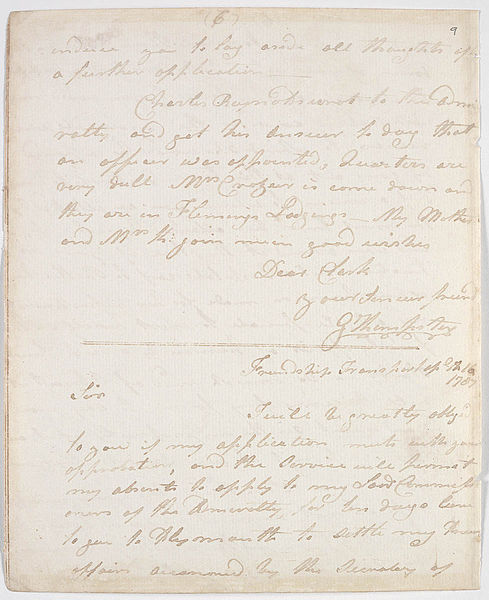 (6)
9
induce you to lay aside all thoughts of
a further application
Charles Raynolds wrot to the Admi
ralty and got his Answer to day that
an officer was appointed, Quarters are
very dull Mrs is come down and
they are in Flemings Lodgings - My Mother
and Mrs join me in good wishes
Dear Clark
your Sincere friend
Friendship Transport 16
1787
Sir
I will be greatly oblig'd
to you if my application meets with your
approbation, and the Service will permit
my absents to apply to my Lord Commissi
oners of the for ten days leave
to go to Plymouth to settle my
affairs occasioned by the Secretary of